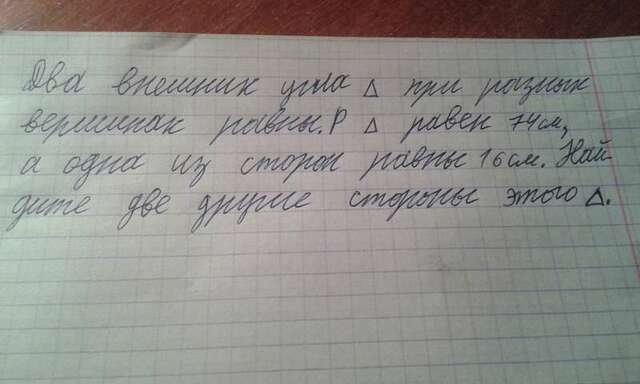 Два внешних угла △ при разных
вершинах равны. P △ равен 74см,
а одна из сторон равны 16см. Най
дите две другие стороны этого △.